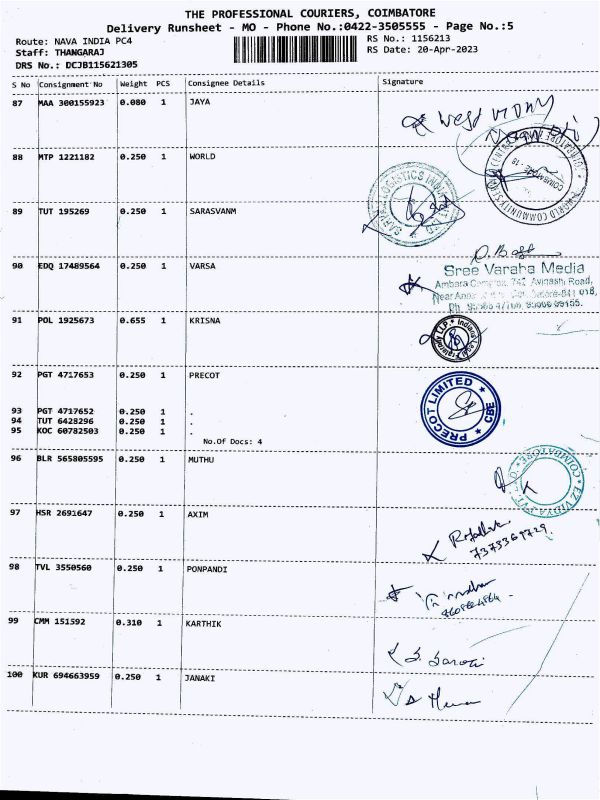 THE PROFESSIONAL COURIERS, COIMBATORE
Delivery Runsheet - MO - Phone No.:0422-3505555 - Page No.:5
Route: NAVA INDIA PC4
RS No.: 1156213
Staff: THANGARAJ
RS Date: 20-Apr-2023
DRS No.: DCJB115621305
S No Consignment No Weight PCS Consignee Details Signature
87 MAA 300155923 0.080 1 JAYA
88 MTP 1221182 0.250 1 WORLD
89 TUT 195269 0.250 1 SARASVANM
90 EDQ 17489564 0.250 1 VARSA
Sree Varaha Media
Avinashi Road,
91 POL 1925673 0.655 1 KRISNA
92 PGT 4717653 0.250 1 PRECOT
PRECOT LIMITED * CBE *
93 PGT 4717652 0.250 1 .
94 TUT 6428296 0.250 1 .
95 KOC 60782503 0.250 1 .
No.Of Docs: 4
96 BLR 565805595 0.250 1 MUTHU
97 HSR 2691647 0.250 1 AXIM
7373369729
98 TVL 3550560 0.250 1 PONPANDI
99 CMM 151592 0.310 1 KARTHIK
100 KUR 694663959 0.250 1 JANAKI